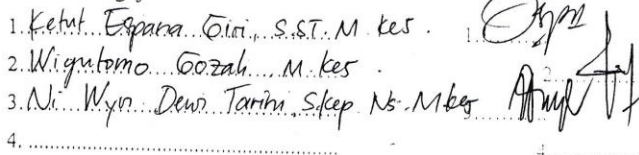 1. Ketut Espana Giri, S.ST. M Kes. 1.
2. Wigutomo Gozali M.kes. 2
3. Ni Wyn Dewi Tarini, S.kep Ns. M.kes 3.
4. 4